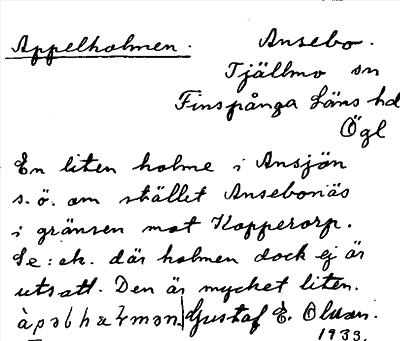 Appelholmen. Ansebo.
Tjällmo sn
Finspånga Läns hd
Ögl
En liten holme i Ansjön
s.ö. om stället Ansebonäs
i gränsen mot Kopperorp.
Se: ek. där holmen dock ej är
utsatt. Den är mycket liten.
Gustaf E. Olsson.
1933.